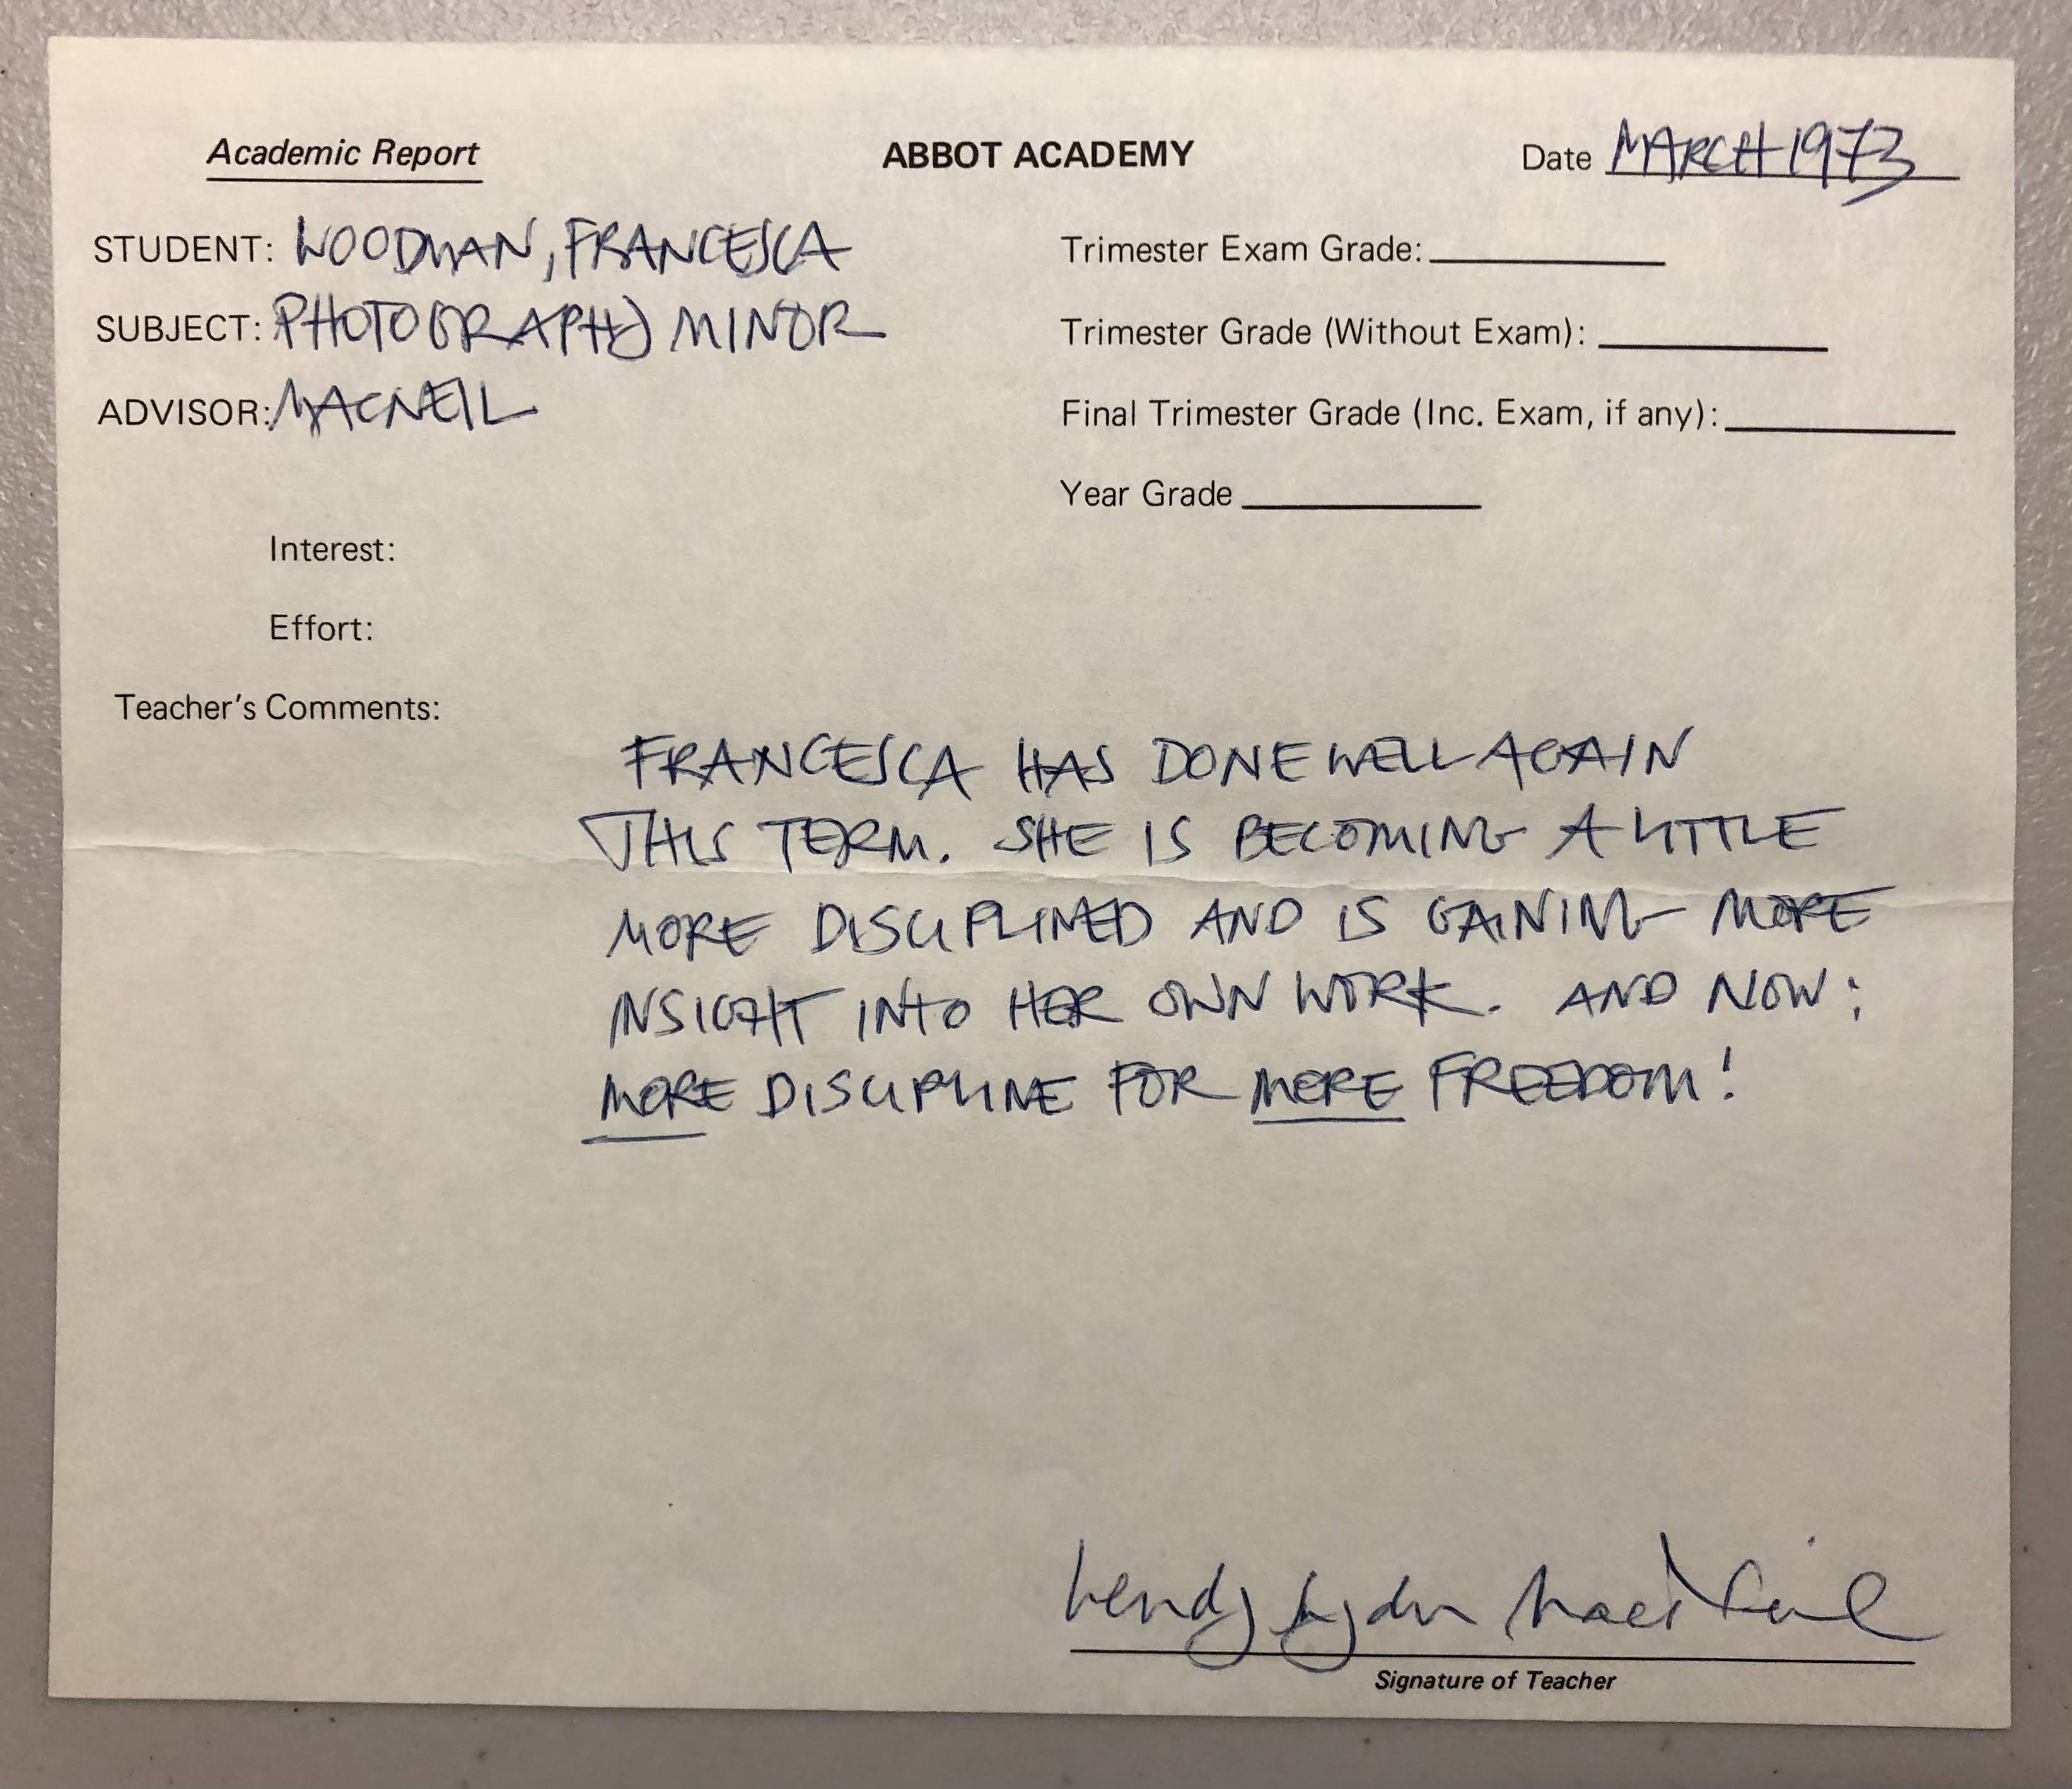 Academic Report ABBOT ACADEMY Date MARCH 1973
STUDENT: WOODMAN, FRANCESCA Trimester Exam Grade:
SUBJECT: PHOTOGRAPHY MINOR Trimester Grade (Without Exam):
ADVISOR: MACNEIL Final Trimester Grade (Inc. Exam, if any):
Year Grade
Interest:
Effort:
Teacher's Comments:
FRANCESCA HAS DONE WELL AGAIN
THIS TERM. SHE IS BECOMING A LITTLE
MORE DISCIPLINED AND IS GAINING MORE
INSIGHT INTO HER OWN WORK. AND NOW:
MORE DISCIPLINE FOR MORE FREEDOM!
Wendy Snyder MacNeil
Signature of Teacher